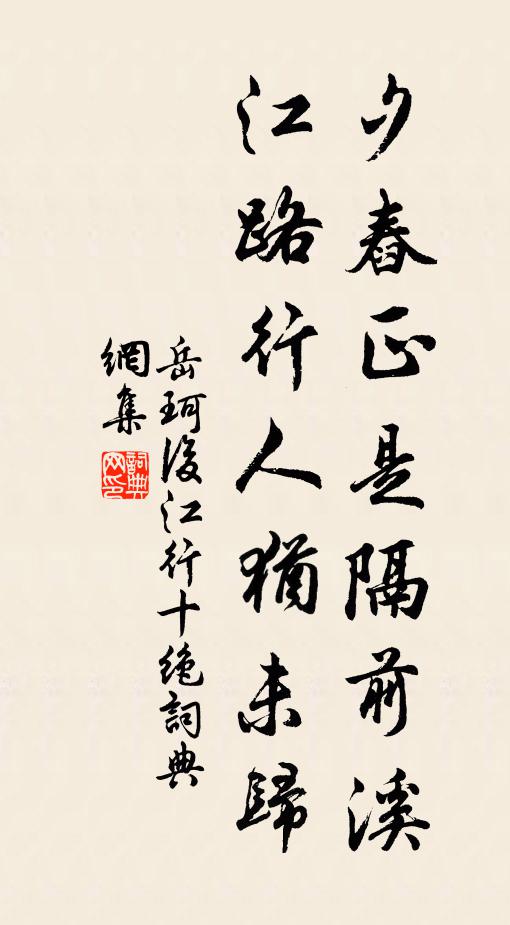 夕舂正是隔前溪
江路行人猶未歸
岳珂後江行十絶詞典
網集
詞典網印